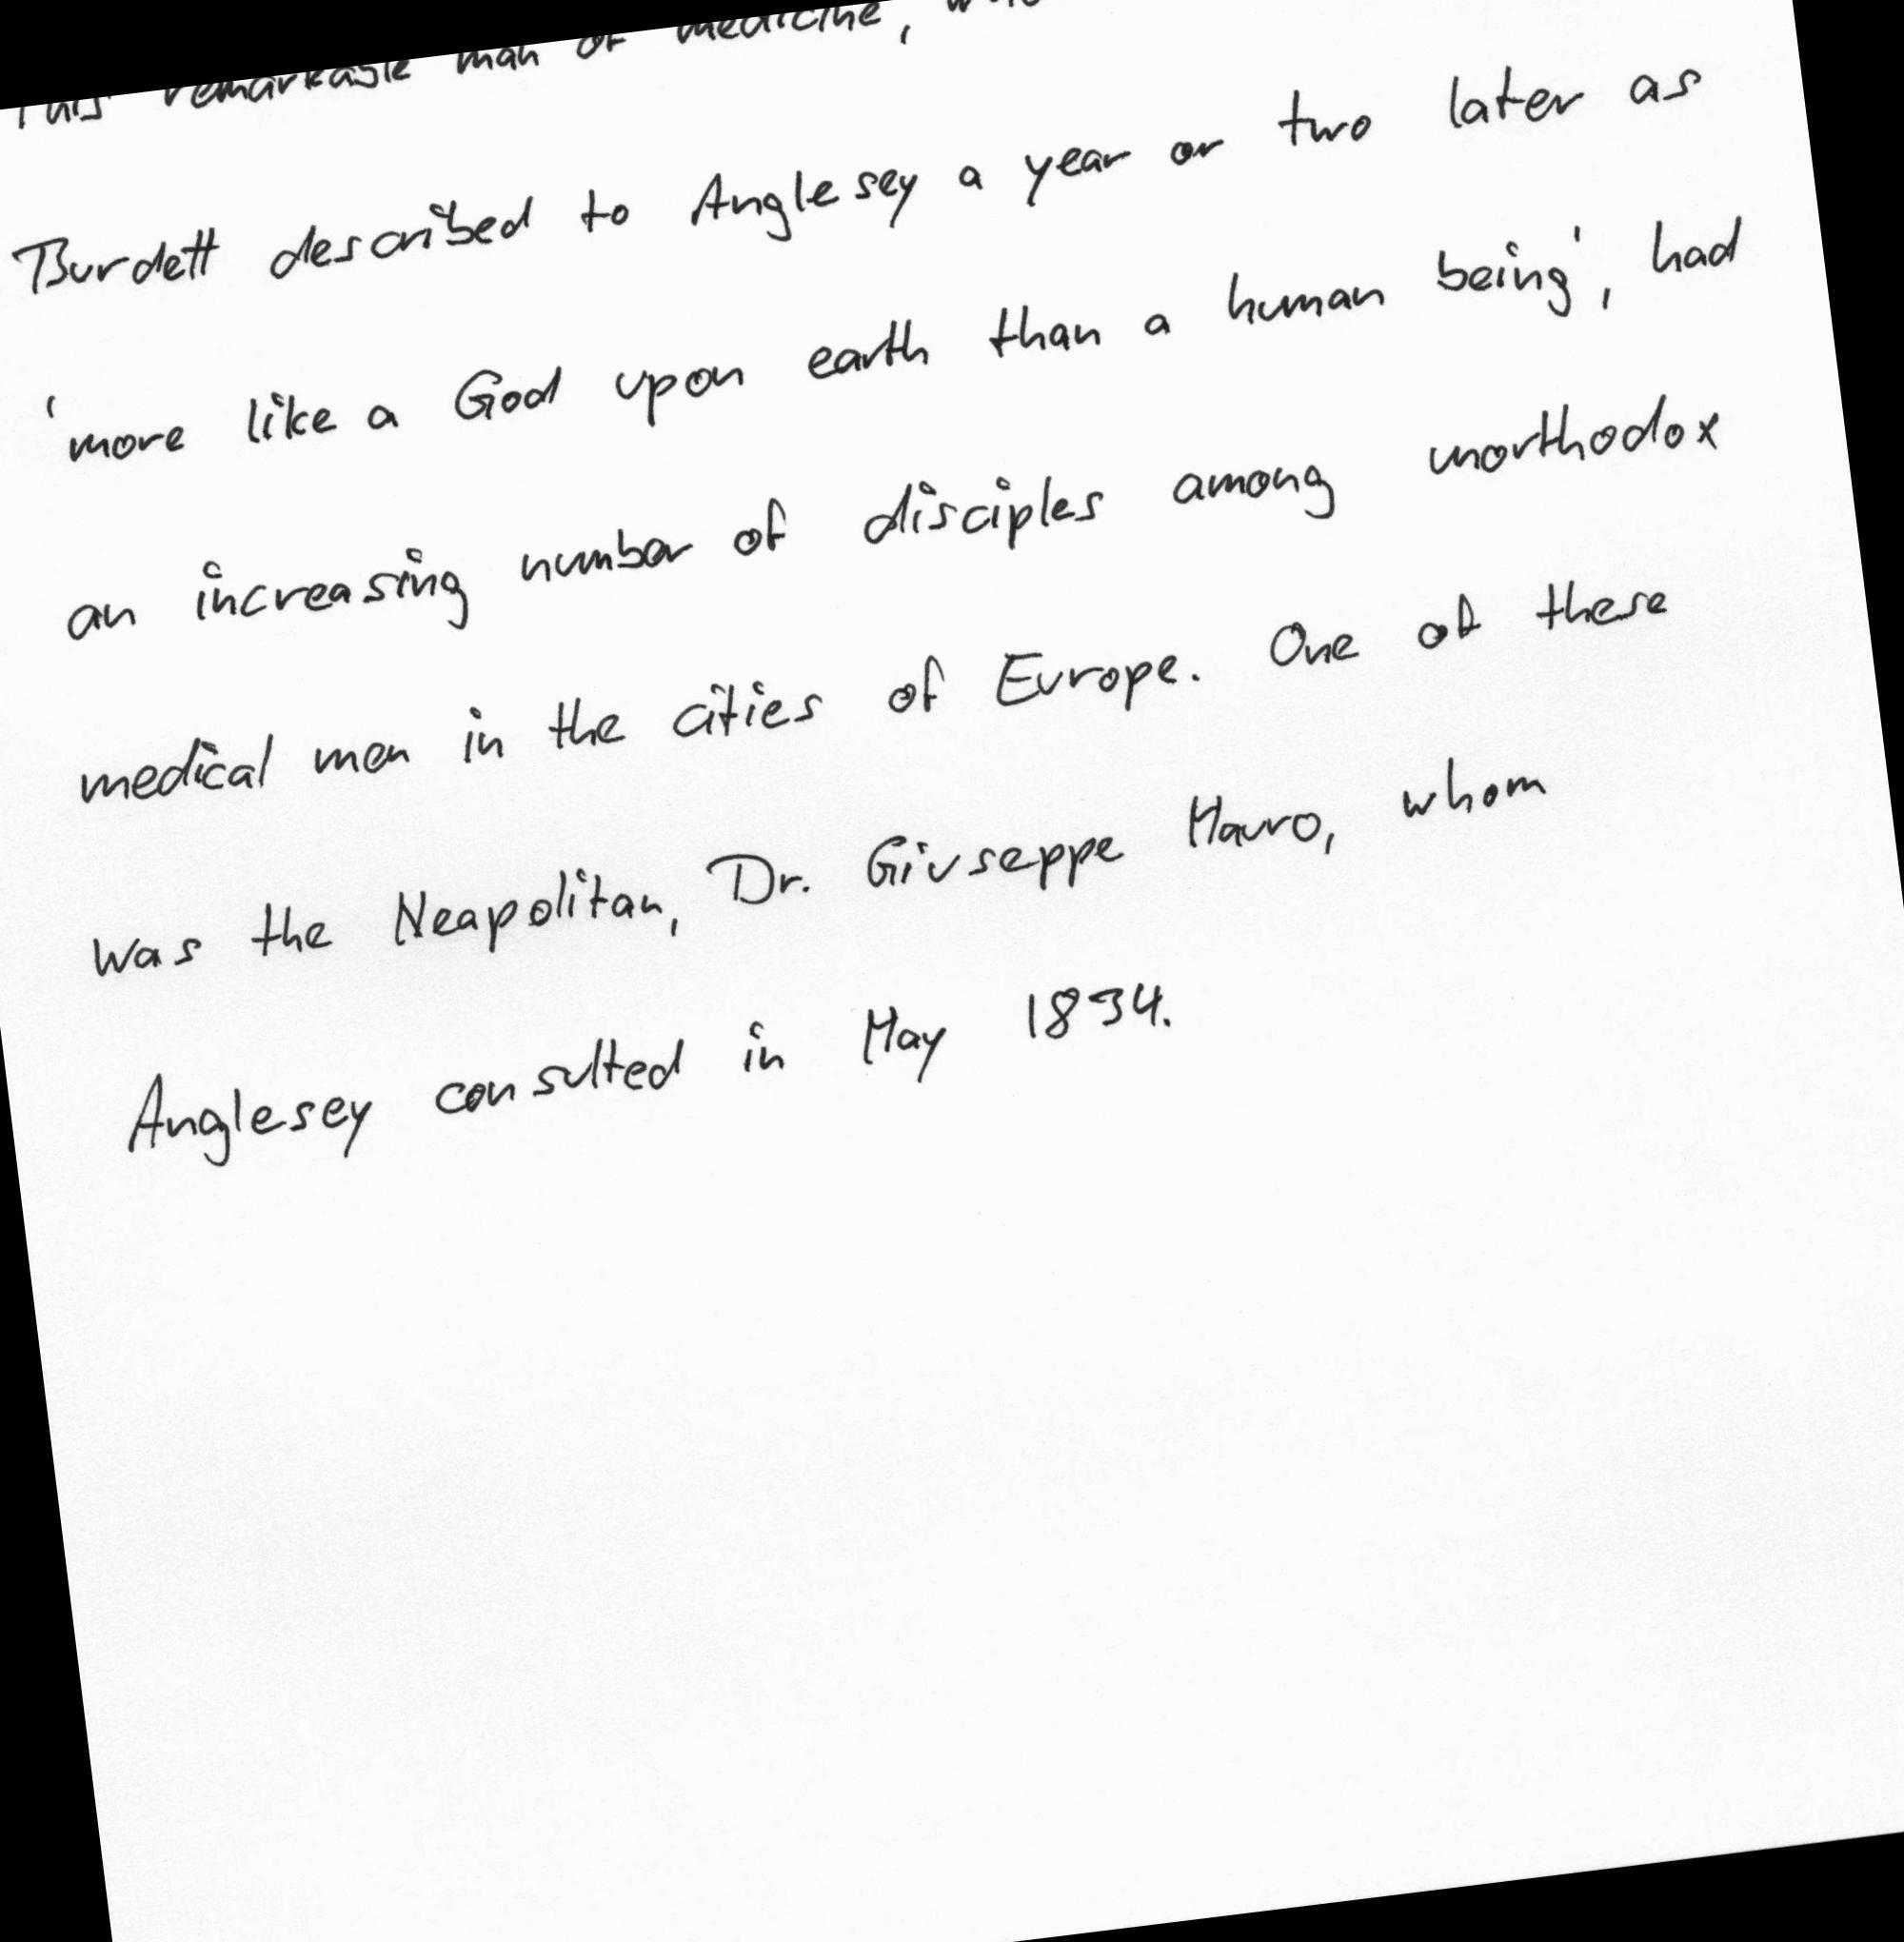 This remarkable man of medicine,
Burdett described to Anglesey a year or two later as
'more like a God upon earth than a human being', had
an increasing number of disciples among unorthodox
medical men in the cities of Europe. One of these
was the Neapolitan, Dr. Giuseppe Mauro, whom
Anglesey consulted in May 1834.